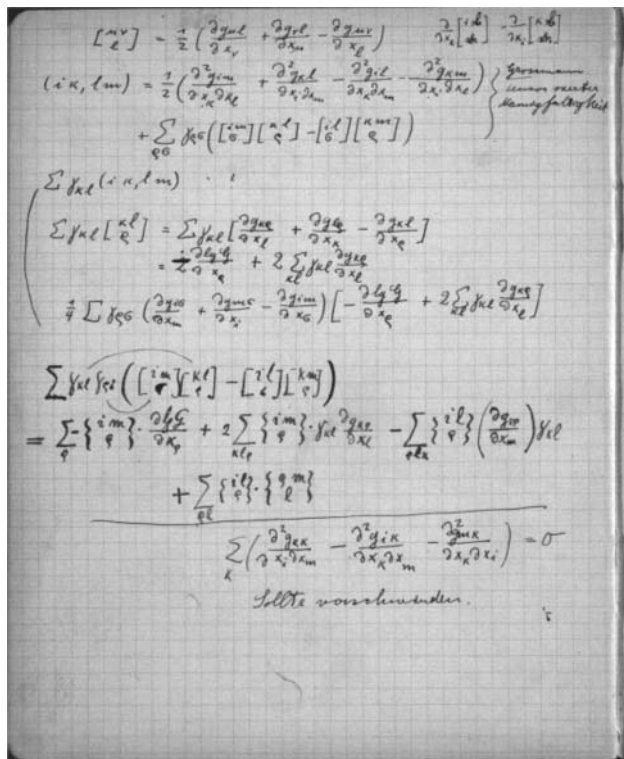 [μν l] = 1/2 (∂g_μl/∂x_ν + ∂g_νl/∂x_μ − ∂g_μν/∂x_l)
(iκ, lm) = 1/2 (∂²g_im/∂x_κ∂x_l + ∂²g_κl/∂x_i∂x_m − ∂²g_il/∂x_κ∂x_m − ∂²g_κm/∂x_i∂x_l) } Grossmann Tensor vierter Mannigfaltigkeit
+ Σ_ρσ γ_ρσ ([im σ][κl ρ] − [il σ][κm ρ])
Σ γ_κl (iκ, lm)
Σ γ_κl [κl ρ] = Σ γ_κl [∂g_κρ/∂x_l + ∂g_lρ/∂x_κ − ∂g_κl/∂x_ρ]
∂lgG/∂x_ρ + 2 Σ_κl γ_κl ∂g_κρ/∂x_l
1/4 Σ γ_ρσ (∂g_iσ/∂x_m + ∂g_mσ/∂x_i − ∂g_im/∂x_σ) [−∂lgG/∂x_ρ + 2 Σ_κl γ_κl ∂g_κρ/∂x_l]
Σ γ_κl γ_ρσ ([im σ][κl ρ] − [il σ][κm ρ])
= Σ_ρ −{im ρ}·∂lgG/∂x_ρ + 2 Σ_κlρ {im ρ}·γ_κl ∂g_κρ/∂x_l − Σ_ρlκ {il ρ} (∂g_κρ/∂x_m) γ_κl
+ Σ_ρl {il ρ}·{ρm l}
Σ_κ (∂²g_κκ/∂x_i∂x_m − ∂²g_iκ/∂x_κ∂x_m − ∂²g_mκ/∂x_κ∂x_i) = 0
Sollte verschwinden.